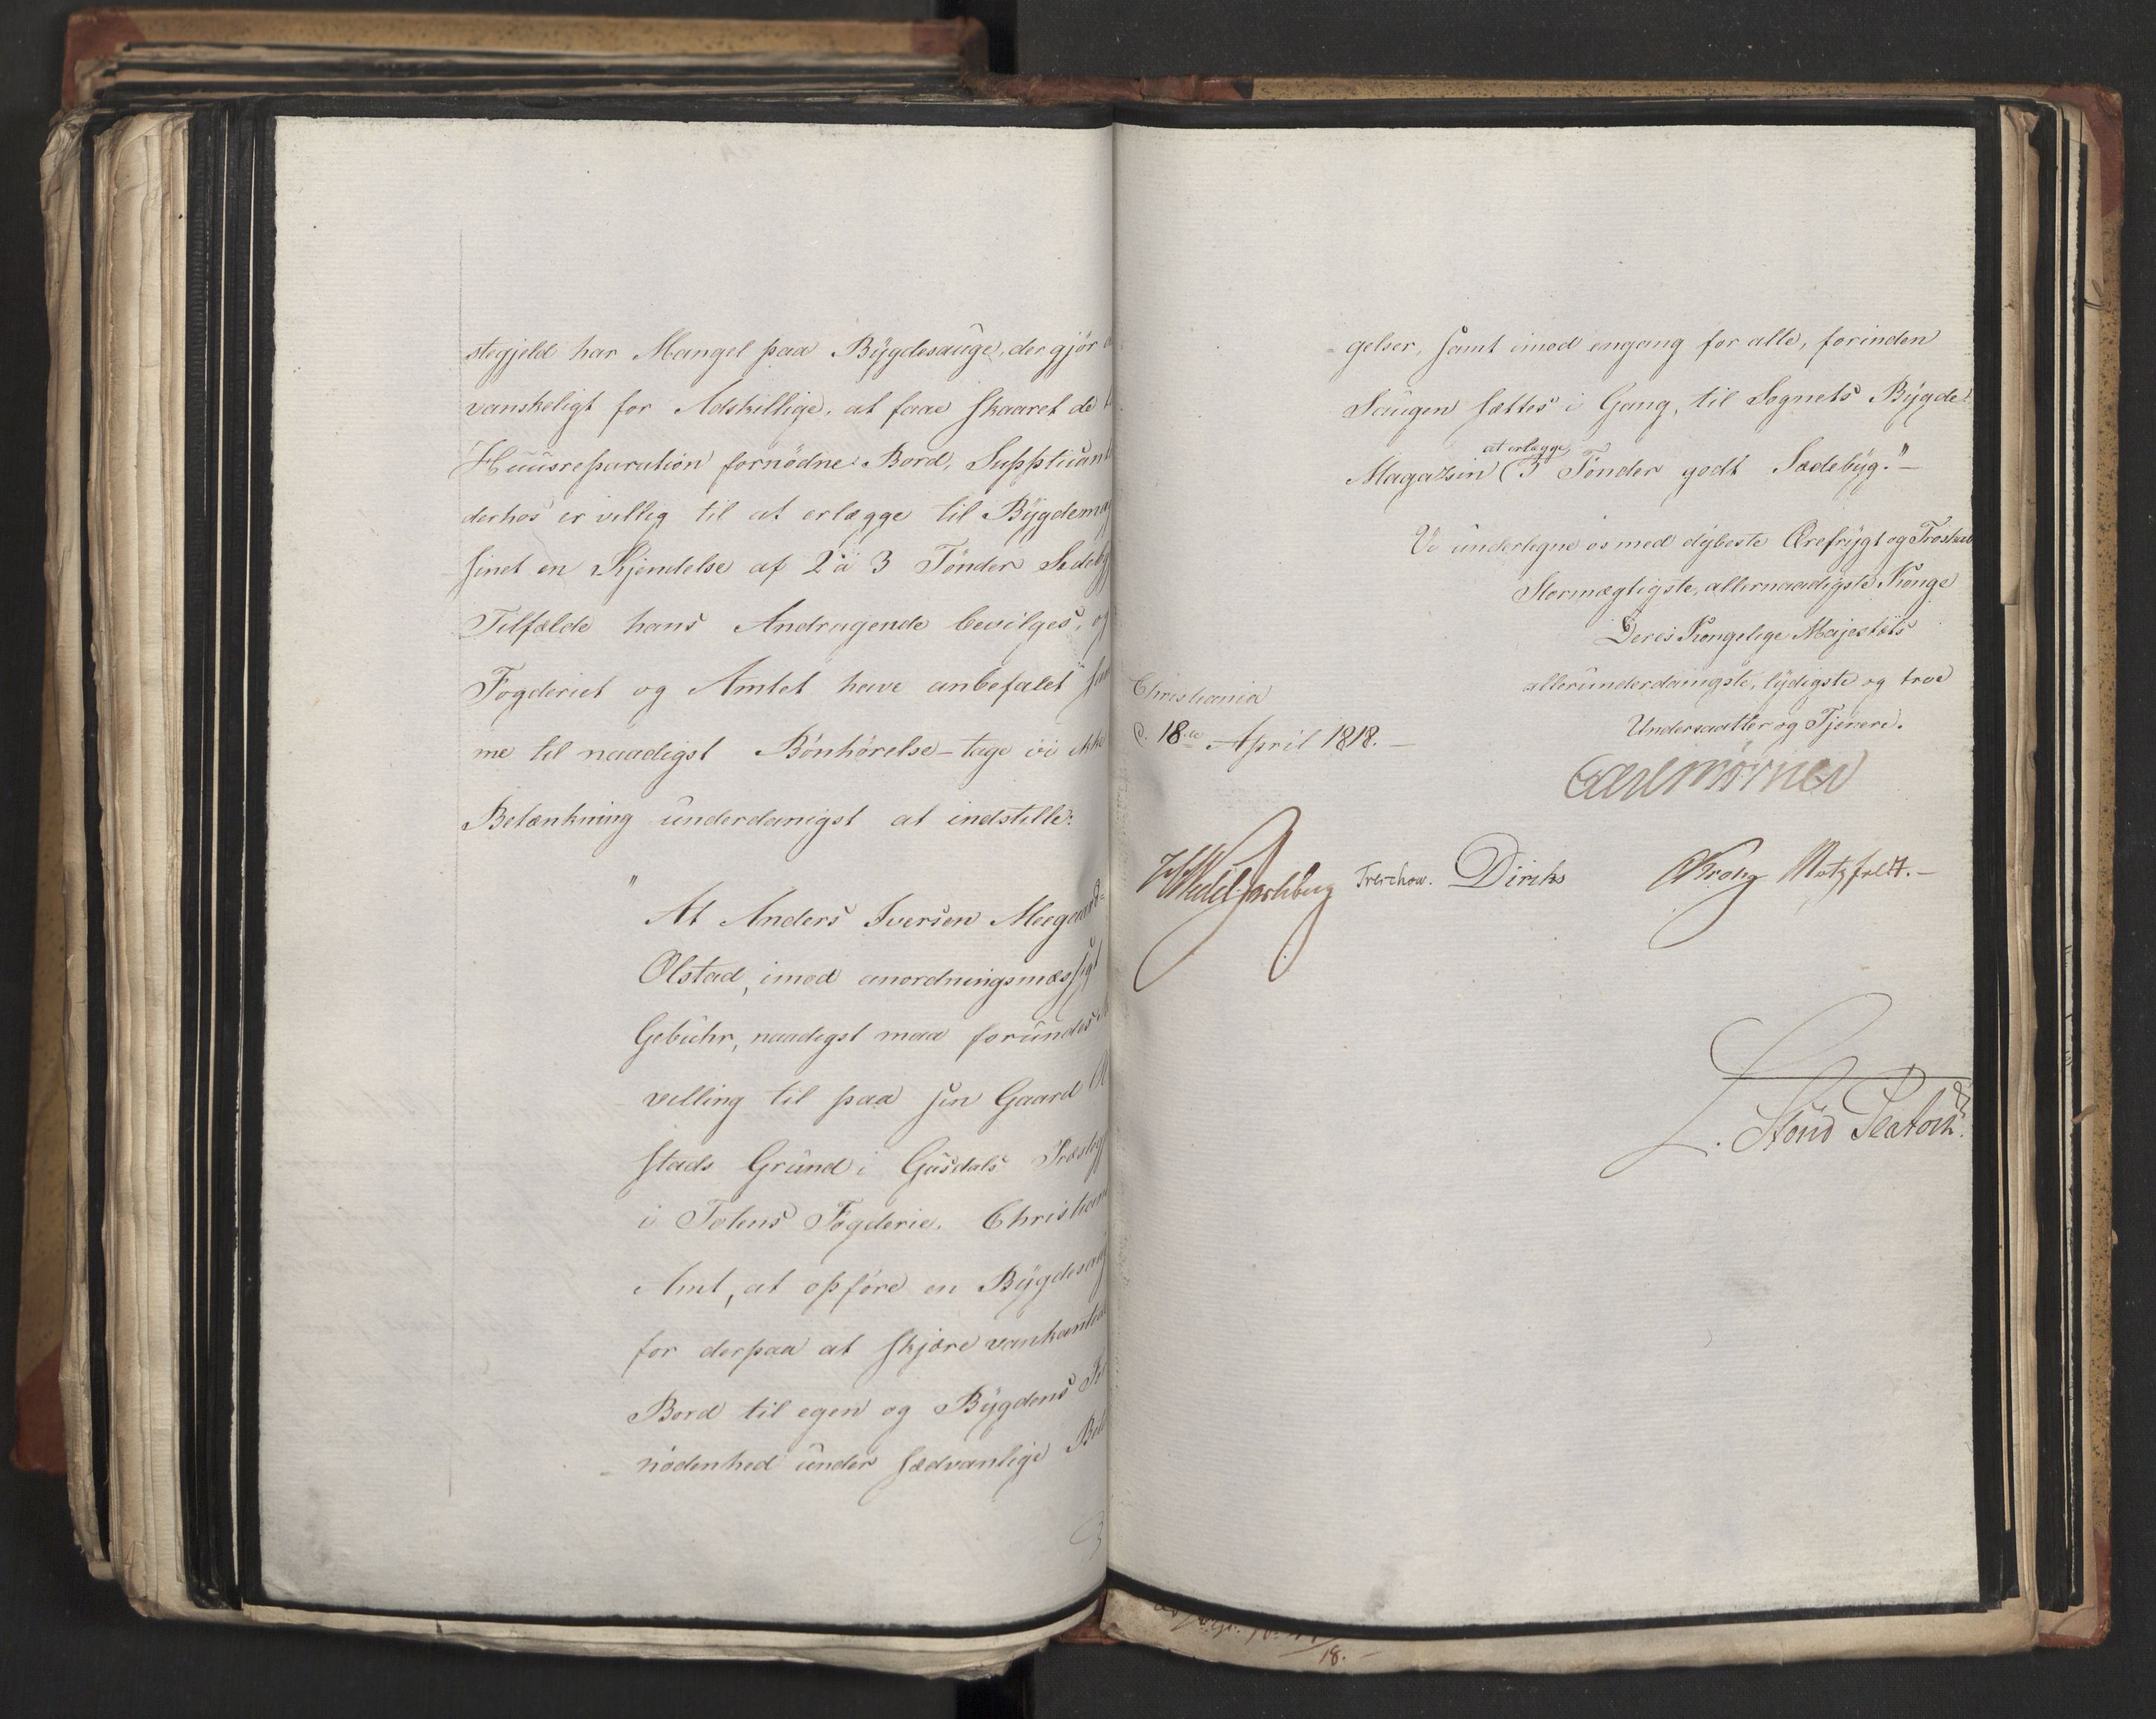 stegjeld har Mangel paa Bÿgdesauge, der gjør
vanskeligt for Adskillige, at faae skaaret de
Huusreparation fornödne Bord, Supplicant
derhos er villig til at erlægge til Bÿgdemag
sinet en Kjendelse af 2 à 3 Tönder Sædebÿg
Tilfælde hans Andragende bevilges, og
Fogderiet og Amtet have anbefalet sam
me til naadigst Bönhörelse – tage vi ikke
Betænkning underdanigst at indstille:
"At Anders Iversen Meegaard-
Olstad, imod anordningsmæssigt
Gebuhr, naadigst maa forundes
villing til paa sin Gaard Ol
stads Grund i Gusdals Præste
i Totens Fogderie, Christians
Amt, at opföre en Bÿgdesaug
for derpaa at skjære vankantede
Bord til egen og Bÿgdens For
nödenhed under sædvanlige Bet
gelser, samt imod engang for alle, forinden
Saugen sættes i Gang, til Sognets Bÿgde-
at erlægge
Magazin (3 Tönder godt Sædebÿg."–
Vi underlegne os med dÿbeste Ærefrÿgt og Troskab
Stormægtigste, allernaadigste Konge
Deres Kongelige Majestæts
allerunderdanigste, lÿdigste og troe
Undersaatter og Tjenere.
Christiania
d. 18de April 1818. –
Carl Mörner
Wedel Jarlsberg Treschow. Diriks Krohg Motzfeldt. –
L. Stoud Platou
18. –